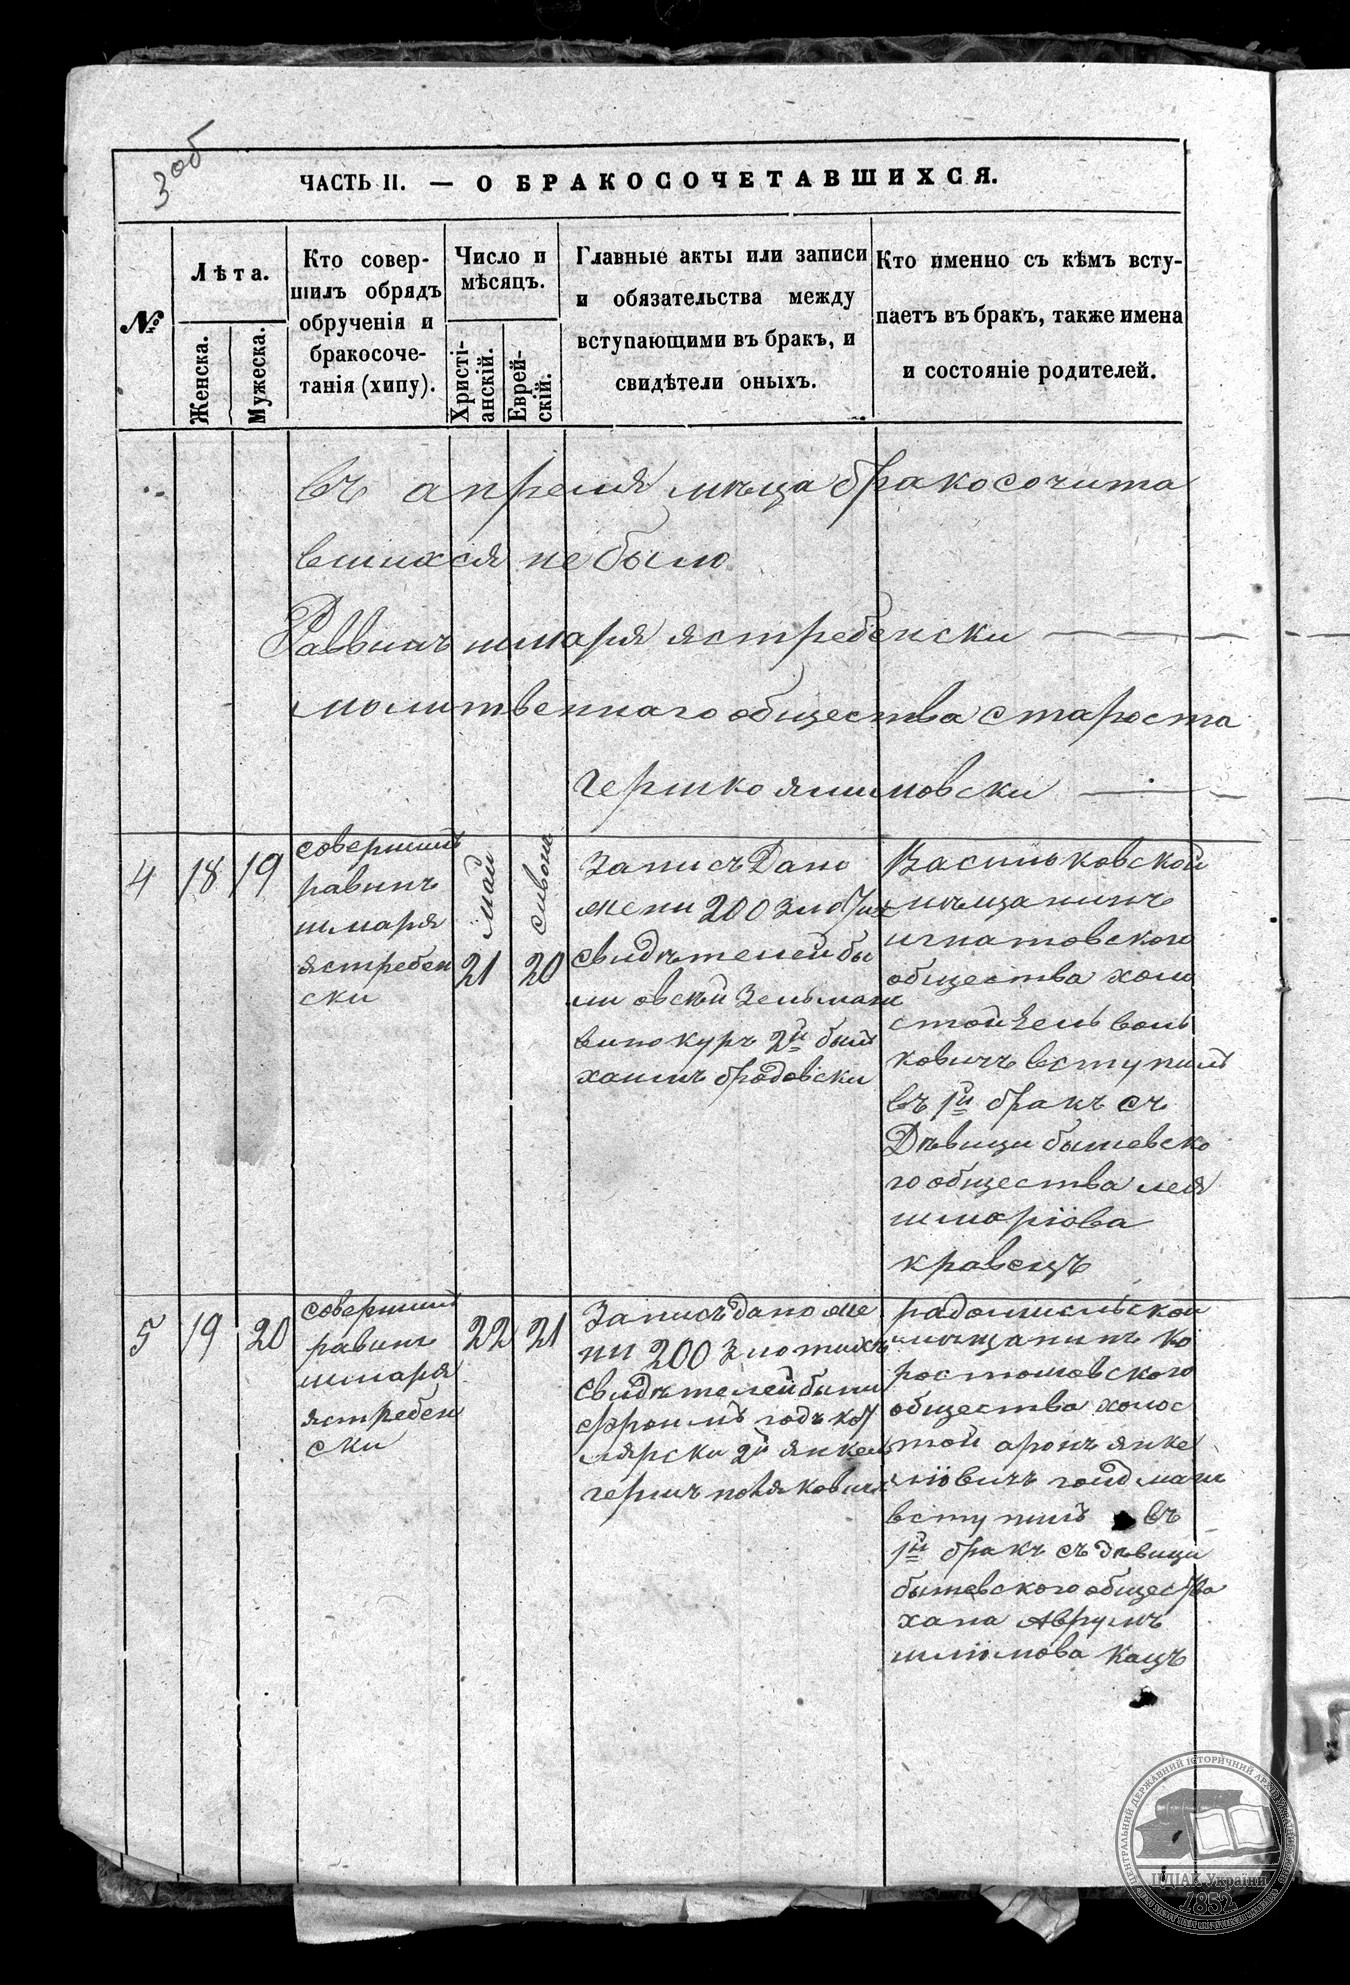 3об
ЧАСТЬ II. — О БРАКОСОЧЕТАВШИХСЯ.
№
Лѣта.
Женска.
Мужеска.
Кто совер-
шилъ обрядъ
обрученія и
бракосоче-
танія (хипу).
Число и
мѣсяцъ.
Христі-
анскій.
Еврей-
скій.
Главные акты или записи
и обязательства между
вступающими въ бракъ, и
свидѣтели оныхъ.
Кто именно съ кѣмъ всту-
паетъ въ бракъ, также имена
и состояніе родителей.
въ апреля мѣца бракосочита
вшихся не было
Раввинъ шмаря ястребенски
молитвеннаго общества староста
Гершко
4
18
19
совершилъ
равинъ
шмаря
ястребен
ски
май
21
сивонъ
20
Запись Дано
жени 200 злотих
свидѣтелей бы
ли Зельман
винокуръ 2й был
хаимъ бродовски
Васильковской
мѣщанинъ
игнатовского
общества холо
стой Зель воль
ковичъ вступилъ
въ 1й бракъ съ
Дѣвици бышевско
го общества лея
шмаріова
кравецъ
5
19
20
совершил
равинъ
шмаря
ястребен
ски
22
21
Запись дано же
ни 200 злотихъ
свидѣтелей были
лярски 2й янкель
гершъ
радомисльской
мѣщанинъ ко
ростовского
общества холос
той аронъ янке
ліовичъ
вступилъ въ
1й бракъ съ дѣвици
бышевского общества
хана Аврумъ
шліомова Кацъ
ЦЕНТРАЛЬНИЙ ДЕРЖАВНИЙ ІСТОРИЧНИЙ АРХІВ УКРАЇНИ
ЦДІАК України
1852